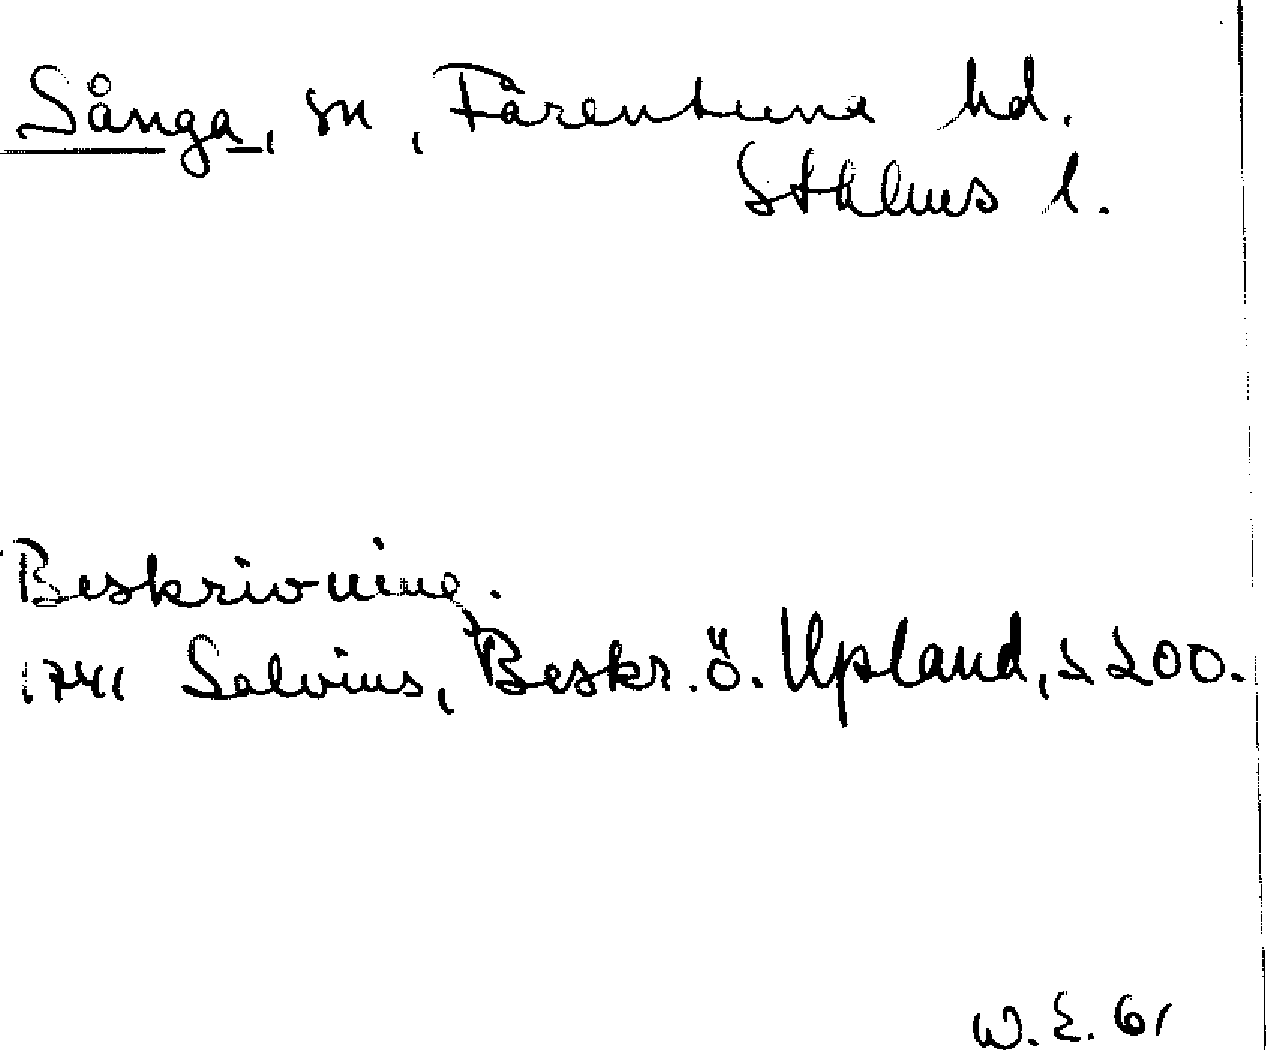 Sånga, sn, Färentuna hd.
Sthlms l.
Beskrivning.
1741 Salvius, Beskr. ö. Upland, s 200.
W. E. 61